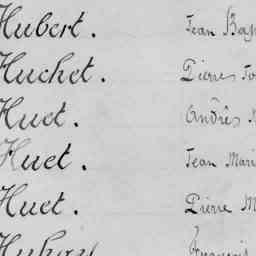 Hubert. Jean Bap
Huchet. Pierre
Huet. Andrés
Huet. Jean Mari
Huet. Pierre M
François